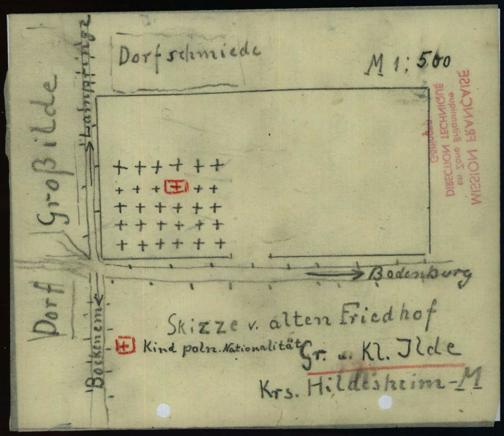 Dorfschmiede
M 1:500
Dorf Großilde
Bockenem
Bodenburg
MISSION FRANÇAISE
en Zone Britannique
DIRECTION TECHNIQUE
Göttingen
Skizze v. alten Friedhof
Gr. u. Kl. Ilde
Krs. Hildesheim-M
Kind poln. Nationalität